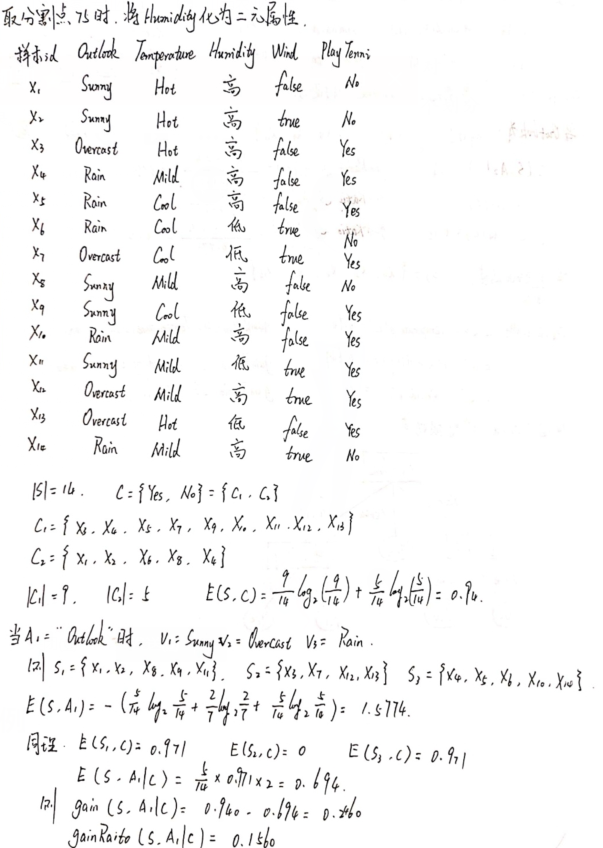 取分割点75时.将Humidity化为二元属性.
样本id Outlook Temperature Humidity Wind Play Tennis
X₁ Sunny Hot 高 false No
X₂ Sunny Hot 高 true No
X₃ Overcast Hot 高 false Yes
X₄ Rain Mild 高 false Yes
X₅ Rain Cool 高 false Yes
X₆ Rain Cool 低 true No
X₇ Overcast Cool 低 true Yes
X₈ Sunny Mild 高 false No
X₉ Sunny Cool 低 false Yes
X₁₀ Rain Mild 高 false Yes
X₁₁ Sunny Mild 低 true Yes
X₁₂ Overcast Mild 高 true Yes
X₁₃ Overcast Hot 低 false Yes
X₁₄ Rain Mild 高 true No
|S|=14. C={Yes, No}={C₁, C₂}
C₁={X₃, X₄, X₅, X₇, X₉, X₁₀, X₁₁, X₁₂, X₁₃}
C₂={X₁, X₂, X₆, X₈, X₁₄}
|C₁|=9. |C₂|=5 E(S,C)=9/14 log₂(9/14)+5/14 log₂(5/14)=0.94.
当A₁="Outlook"时, V₁=Sunny V₂=Overcast V₃=Rain.
则 S₁={X₁,X₂,X₈,X₉,X₁₁}, S₂={X₃,X₇,X₁₂,X₁₃} S₃={X₄,X₅,X₆,X₁₀,X₁₄}
E(S,A₁)=-(5/14 log₂ 5/14+2/7 log₂ 2/7+5/14 log₂ 5/14)=1.5774.
同理. E(S₁,C)=0.971 E(S₂,C)=0 E(S₃,C)=0.971
E(S,A₁|C)=5/14×0.971×2=0.694.
则 gain(S,A₁|C)=0.940-0.694=0.2460
gainRaito(S,A₁|C)=0.1560